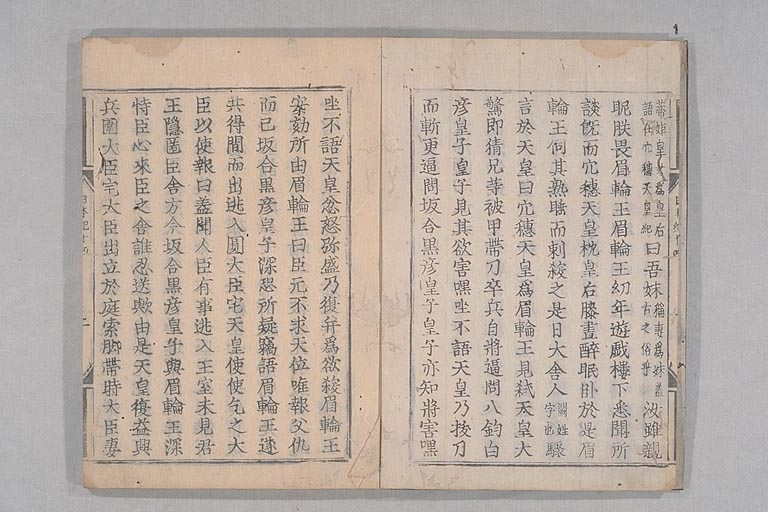 蒂姫皇女爲皇后
語在穴穗天皇紀
曰吾妹
稱妻爲妹蓋
古之俗乎
汝雖親
昵朕畏眉輪王眉輪王幼年遊戲樓下悉聞所
談旣而穴穗天皇枕皇后膝晝醉眠臥於是眉
輪王伺其熟睡而刺殺之是日大舍人
闕姓
字也
驟
言於天皇曰穴穗天皇爲眉輪王見弑天皇大
驚即猜兄等被甲帶刀卒兵自將逼問八釣白
彦皇子皇子見其欲害嘿坐不語天皇乃拔刀
而斬更逼問坂合黑彦皇子皇子亦知將害嘿
坐不語天皇忿怒弥盛乃復幷爲欲殺眉輪王
案劾所由眉輪王曰臣元不求天位唯報父仇
而已坂合黑彦皇子深恐所疑竊語眉輪王遂
共得間而出逃入圓大臣宅天皇使使乞之大
臣以使報曰蓋聞人臣有事逃入王室未見君
王隱匿臣舍方今坂合黑彦皇子與眉輪王深
恃臣心來臣之舍誰忍送歟由是天皇復益興
兵圍大臣宅大臣出立於庭索脚帶時大臣妻